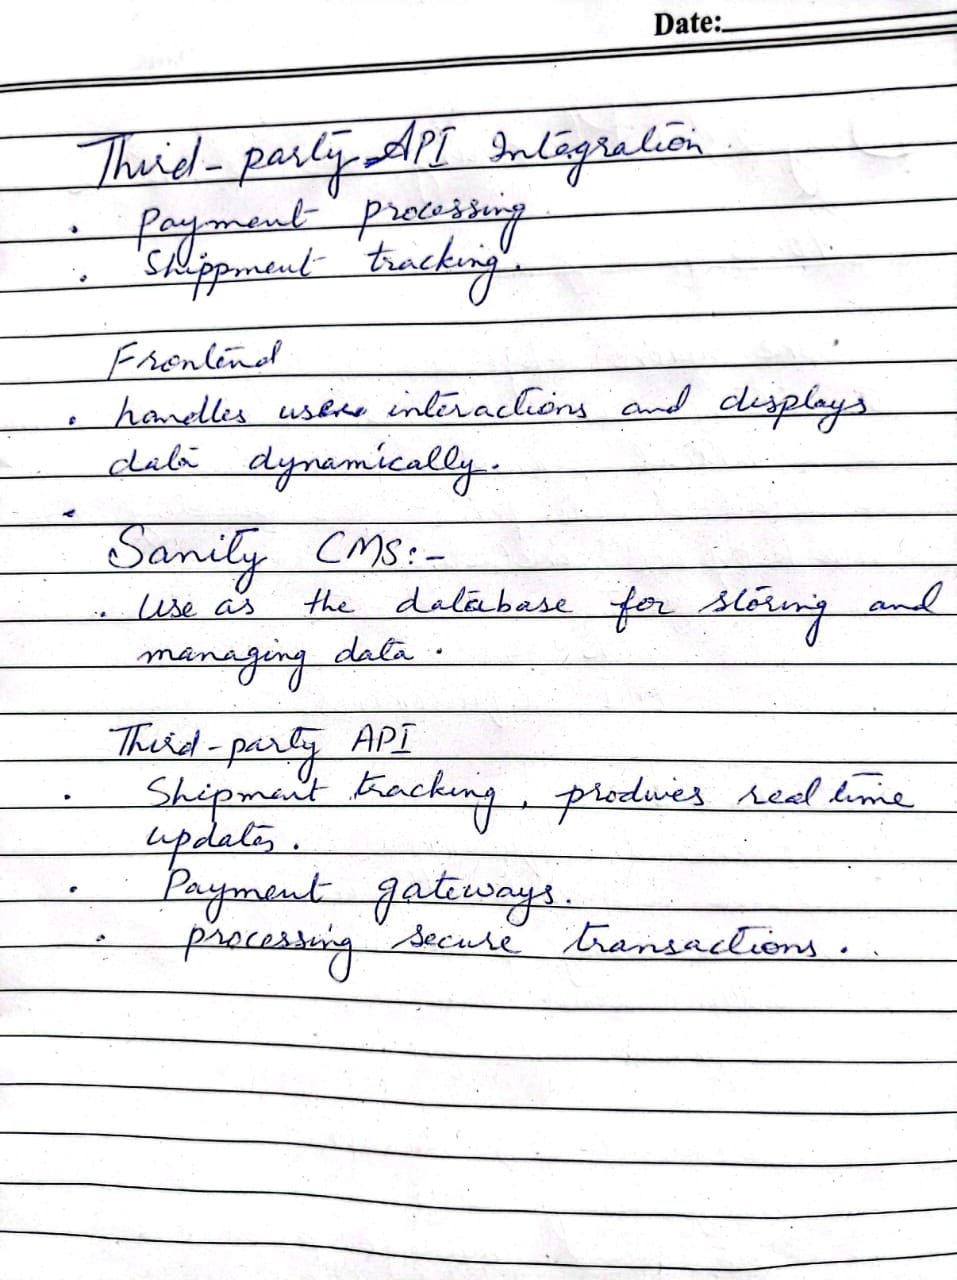 Date:
Third-party API Integration
• Payment processing
• Shippment tracking.
Frontend
• handles user interactions and displays
data dynamically.
Sanity CMS:-
• Use as the database for storing and
managing data.
Third-party API
• Shipment tracking, prodives real time
updates.
• Payment gateways.
• processing secure transactions.